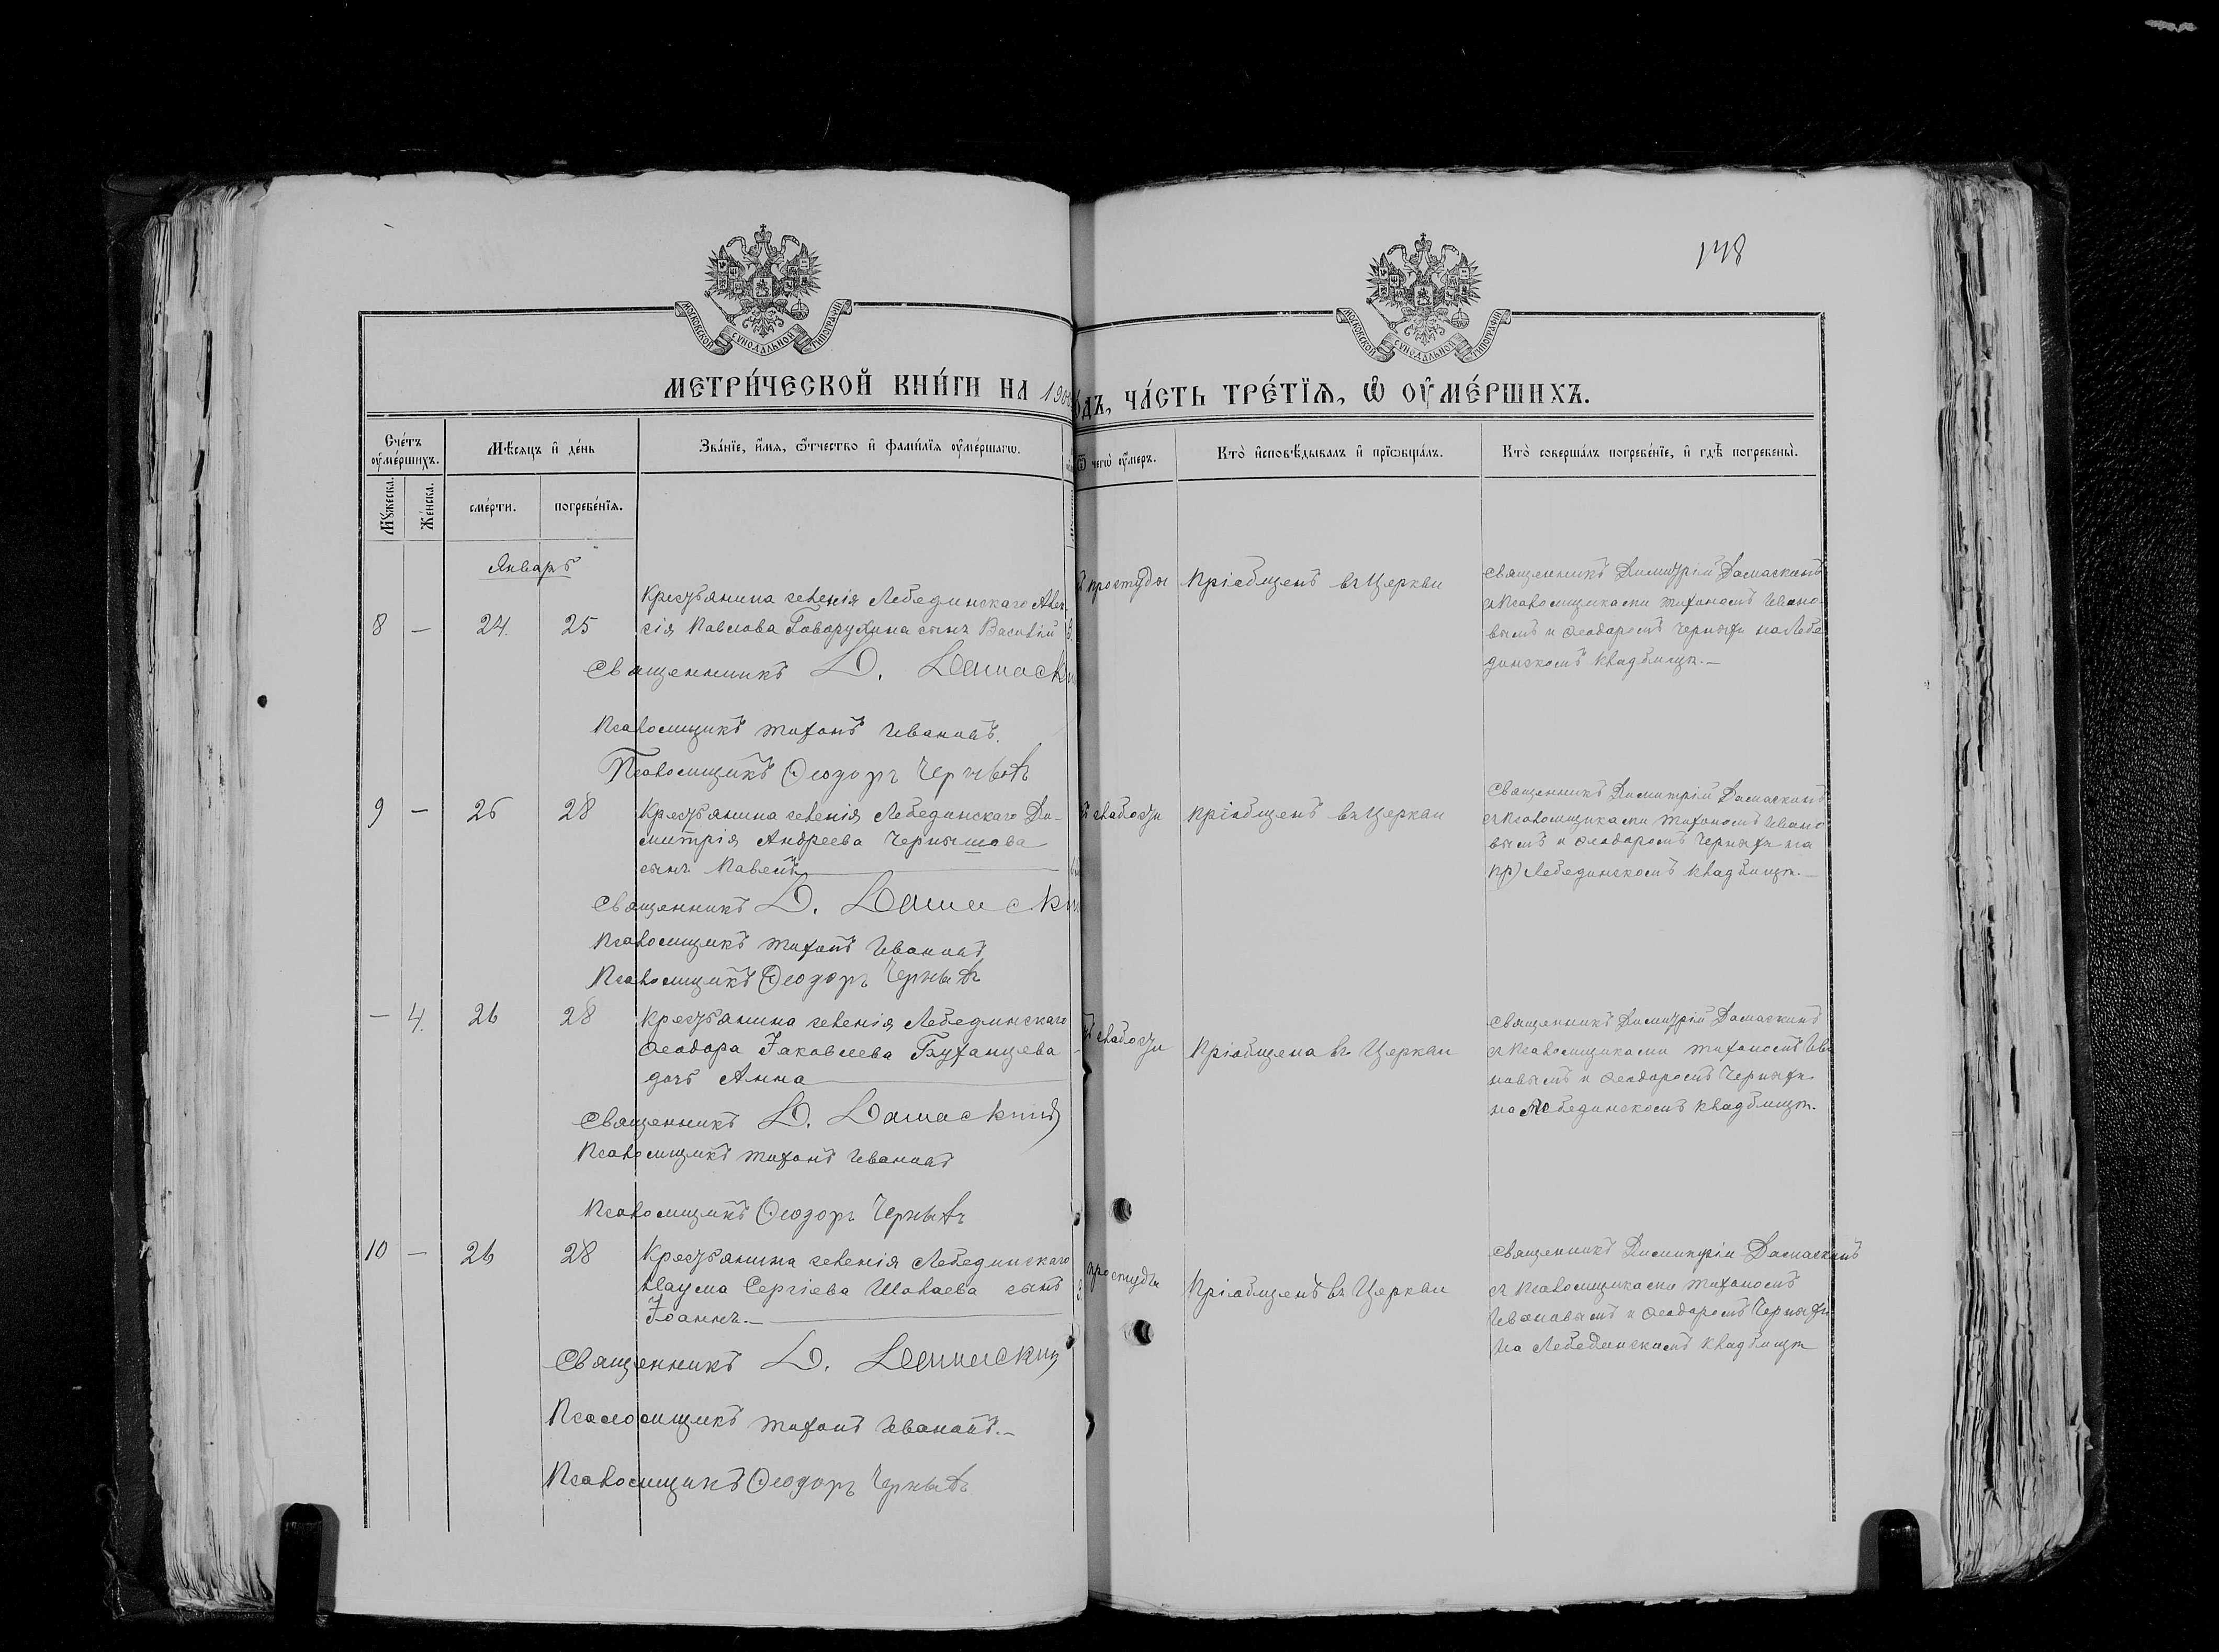 148
МОСКОВСКОЙ СѴНОДАЛЬНОЙ ТИПОГРАФІИ
МОСКОВСКОЙ СѴНОДАЛЬНОЙ ТИПОГРАФІИ
МЕТРИ́ЧЕСКОЙ КНИ́ГИ НА 190
ОДЪ, ЧА́СТЬ ТРЕ́ТІѦ, Ѡ ОУМЕ́РШИХЪ.
Сче́тъ оу҆ме́ршихъ.
Мѣ́сѧцъ и҆ де́нь
Зва́нїе, и҆́мѧ, ѻ҆́тчество и҆ фами́лїѧ оу҆ме́ршагѡ.
Ѿ чегѡ̀ оу҆́меръ.
Кто̀ и҆сповѣ́дывалъ и҆ прїѡбща́лъ.
Кто̀ соверша́лъ погребе́нїе, и҆ гдѣ̀ погребены̀.
Мꙋ́жеска.
Же́нска.
сме́рти.
погребе́нїѧ.
Январь
8 — 24. 25
Крестьянина селенія Лебединскаго Алек
сія Павлова Говорухина сынъ Василій
простуды
Пріобщенъ въ Церкви
Священникъ Димитрій Дамаскинъ
съ Псаломщиками Тихономъ Ивано
вымъ и Ѳеодоромъ Черныхъ на Лебе
динскомъ кладбищѣ.—
Священникъ D. Damaskin
Псаломщикъ Тихонъ Ивановъ.
Псаломщикъ Ѳеодоръ Черныхъ
9 — 26 28
Крестьянина селенія Лебединскаго Ди-
митрія Андреева Чернышова
сынъ Павелъ
слабости
пріобщенъ въ Церкви
Священникъ Димитрій Дамаскинъ
съ Псаломщиками Тихономъ Ивано
вымъ и Ѳеодоромъ Черныхъ на
пр) Лебединскомъ кладбищѣ.—
Священникъ D. Damaskin
Псаломщикъ Тихонъ Ивановъ
Псаломщикъ Ѳеодоръ Черныхъ
— 4. 26 28
Крестьянина селенія Лебединскаго
Ѳеодора Іаковлева Буханцева
дочь Анна
слабости
Пріобщена въ Церкви
Священникъ Димитрій Дамаскинъ
съ Псаломщиками Тихономъ Ива
новымъ и Ѳеодоромъ Черныхъ
на Лебединскомъ кладбищѣ.
Священникъ D. Damaskinъ
Псаломщикъ Тихонъ Ивановъ
Псаломщикъ Ѳеодоръ Черныхъ
10 — 26 28
Крестьянина селенія Лебединскаго
Наума Сергіева Шалаева сынъ
Іоаннъ.—
простуды
Пріобщенъ въ Церкви
Священникъ Димитрій Дамаскинъ
съ Псаломщиками Тихономъ
Ивановымъ и Ѳеодоромъ Черныхъ
На Лебединскомъ кладбищѣ
Священникъ D. Damaskin
Псаломщикъ Тихонъ Ивановъ.—
Псаломщикъ Ѳеодоръ Черныхъ